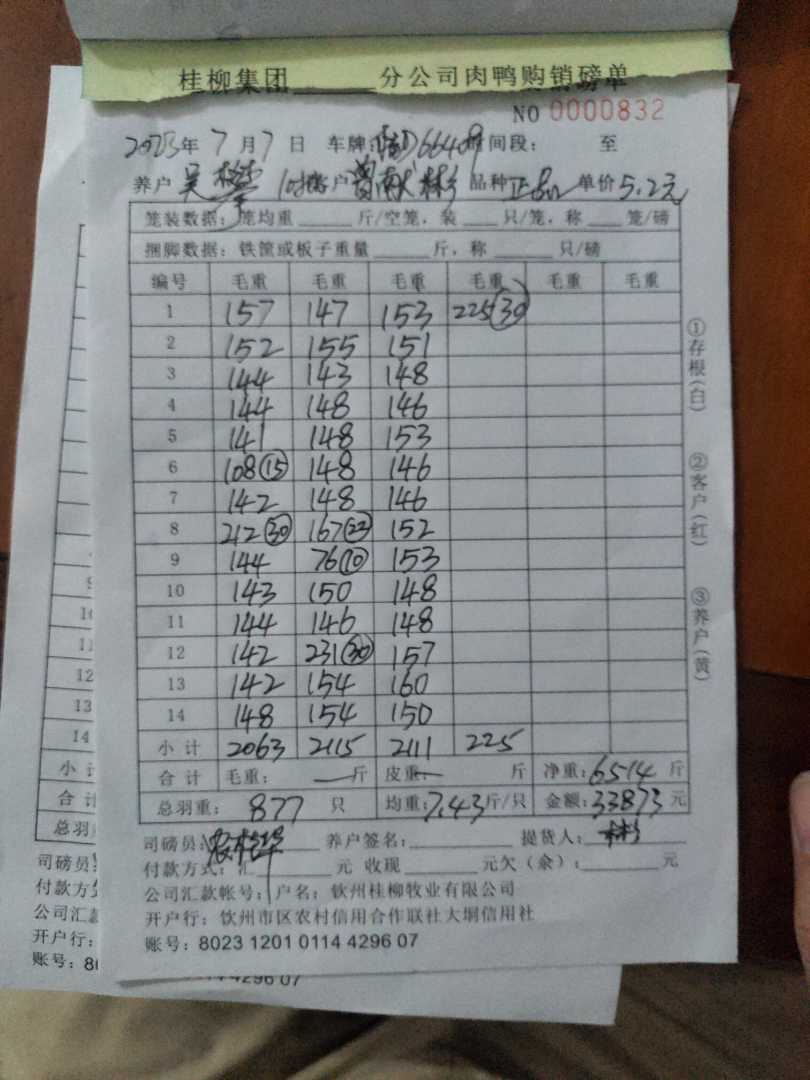 桂柳集团______分公司肉鸭购销磅单
NO 0000832
2023年7月7日 车牌:D66409时间段: 至
养户 吴攀 客户 曾献彬 品种 正品 单价5.2元
笼装数据:笼均重______斤/空笼,装____只/笼,称____笼/磅
捆脚数据:铁筐或板子重量______斤,称______只/磅
编号 毛重 毛重 毛重 毛重 毛重 毛重
1 157 147 153 225(30)
2 152 155 151
3 144 143 148
4 144 148 146
5 141 148 153
6 108(15) 148 146
7 142 148 146
8 212(30) 167(23) 152
9 144 76(10) 153
10 143 150 148
11 144 146 148
12 142 231(30) 157
13 142 154 160
14 148 154 150
小计 2063 2115 2111 225
合计 毛重:—斤 皮重:— 斤 净重:6514斤
总羽重: 877 只 均重:7.43斤/只 金额:33873元
司磅员: 养户签名:________ 提货人:彬
付款方式:汇______元 收现______元欠(余):______元
公司汇款帐号:户名:钦州桂柳牧业有限公司
开户行:钦州市区农村信用合作联社大垌信用社
账号:8023 1201 0114 4296 07
①存根(白)
②客户(红)
③养户(黄)
11
12
13
14
小计
合计
总羽重
司磅员
付款方
公司汇款
开户行:
账号:80
0114 4296 07